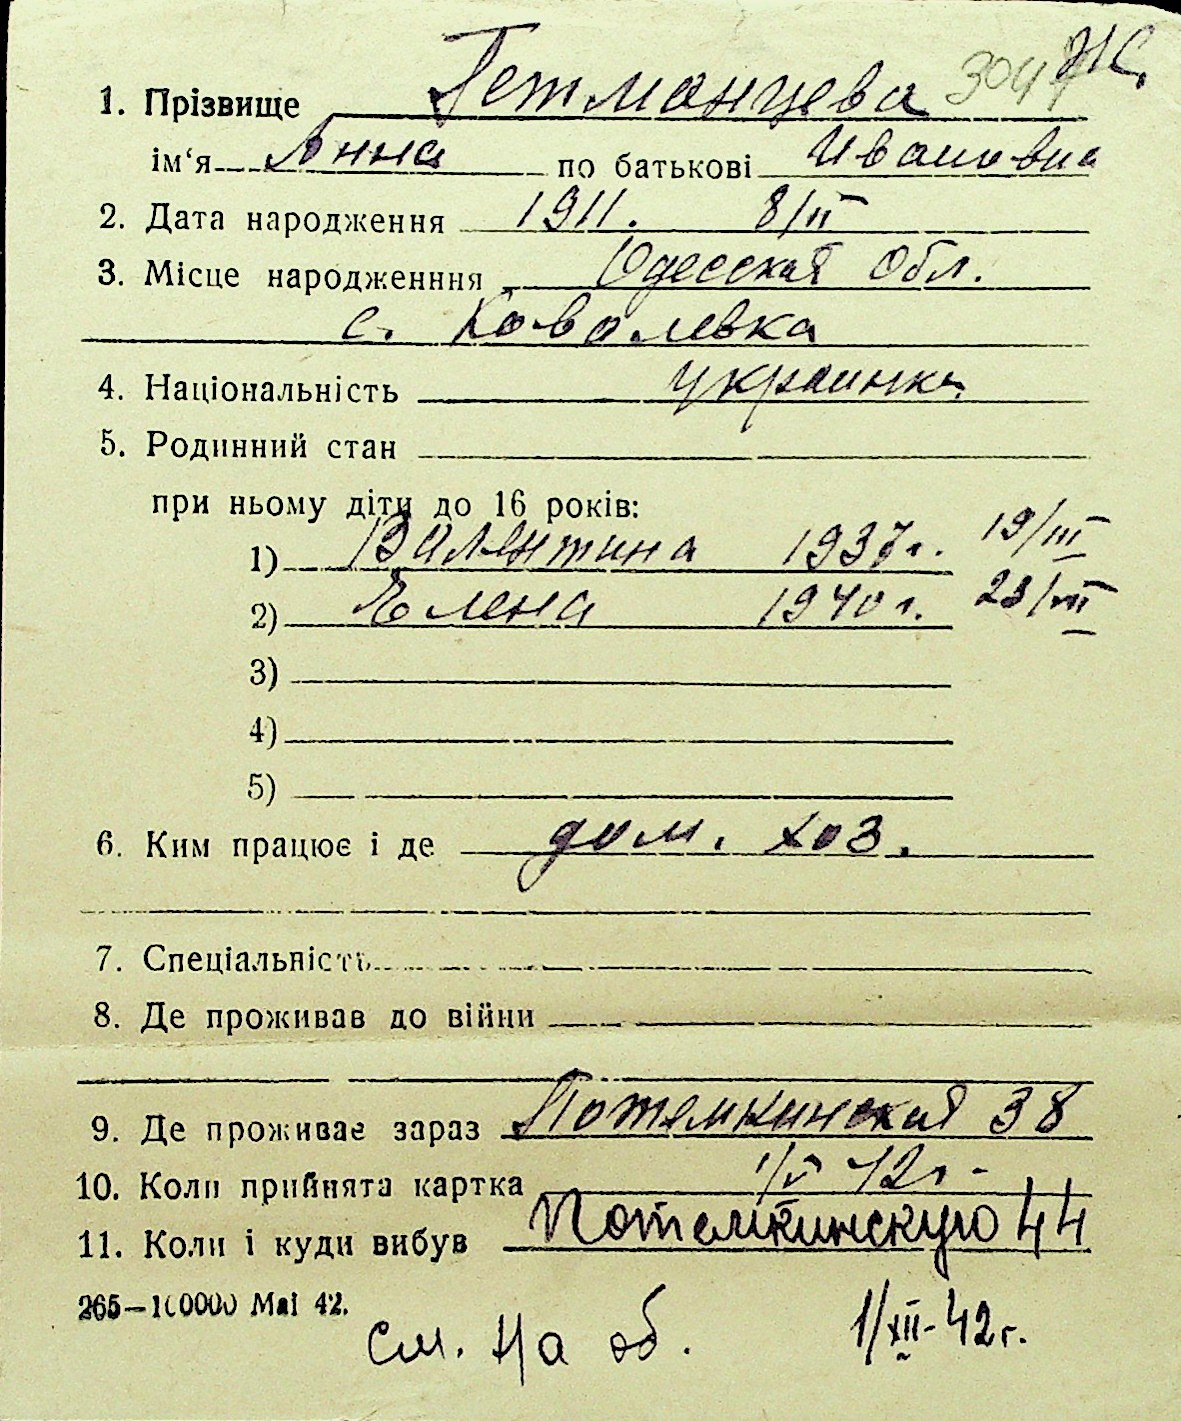 1. Прізвище Гетманцева 3047 Ж.
ім‘я Анна по батькові Ивановна
2. Дата народження 1911. 8/II
3. Місце народженння Одесская обл.
с. Ковалевка
4. Національність украинка
5. Родинний стан
при ньому діти до 16 років:
1) Валентина 1937г. 19/III
2) Елена 1940г. 23/VII
3)
4)
5)
6. Ким працює і де дом. хоз.
7. Спеціальність
8. Де проживав до війни
9. Де проживає зараз Потемкинская 38
10. Коли прийнята картка 1/V 42г.
11. Коли і куди вибув Потемкинскую 44
265—100000 Mai 42.
См. на об. 1/XII-42г.